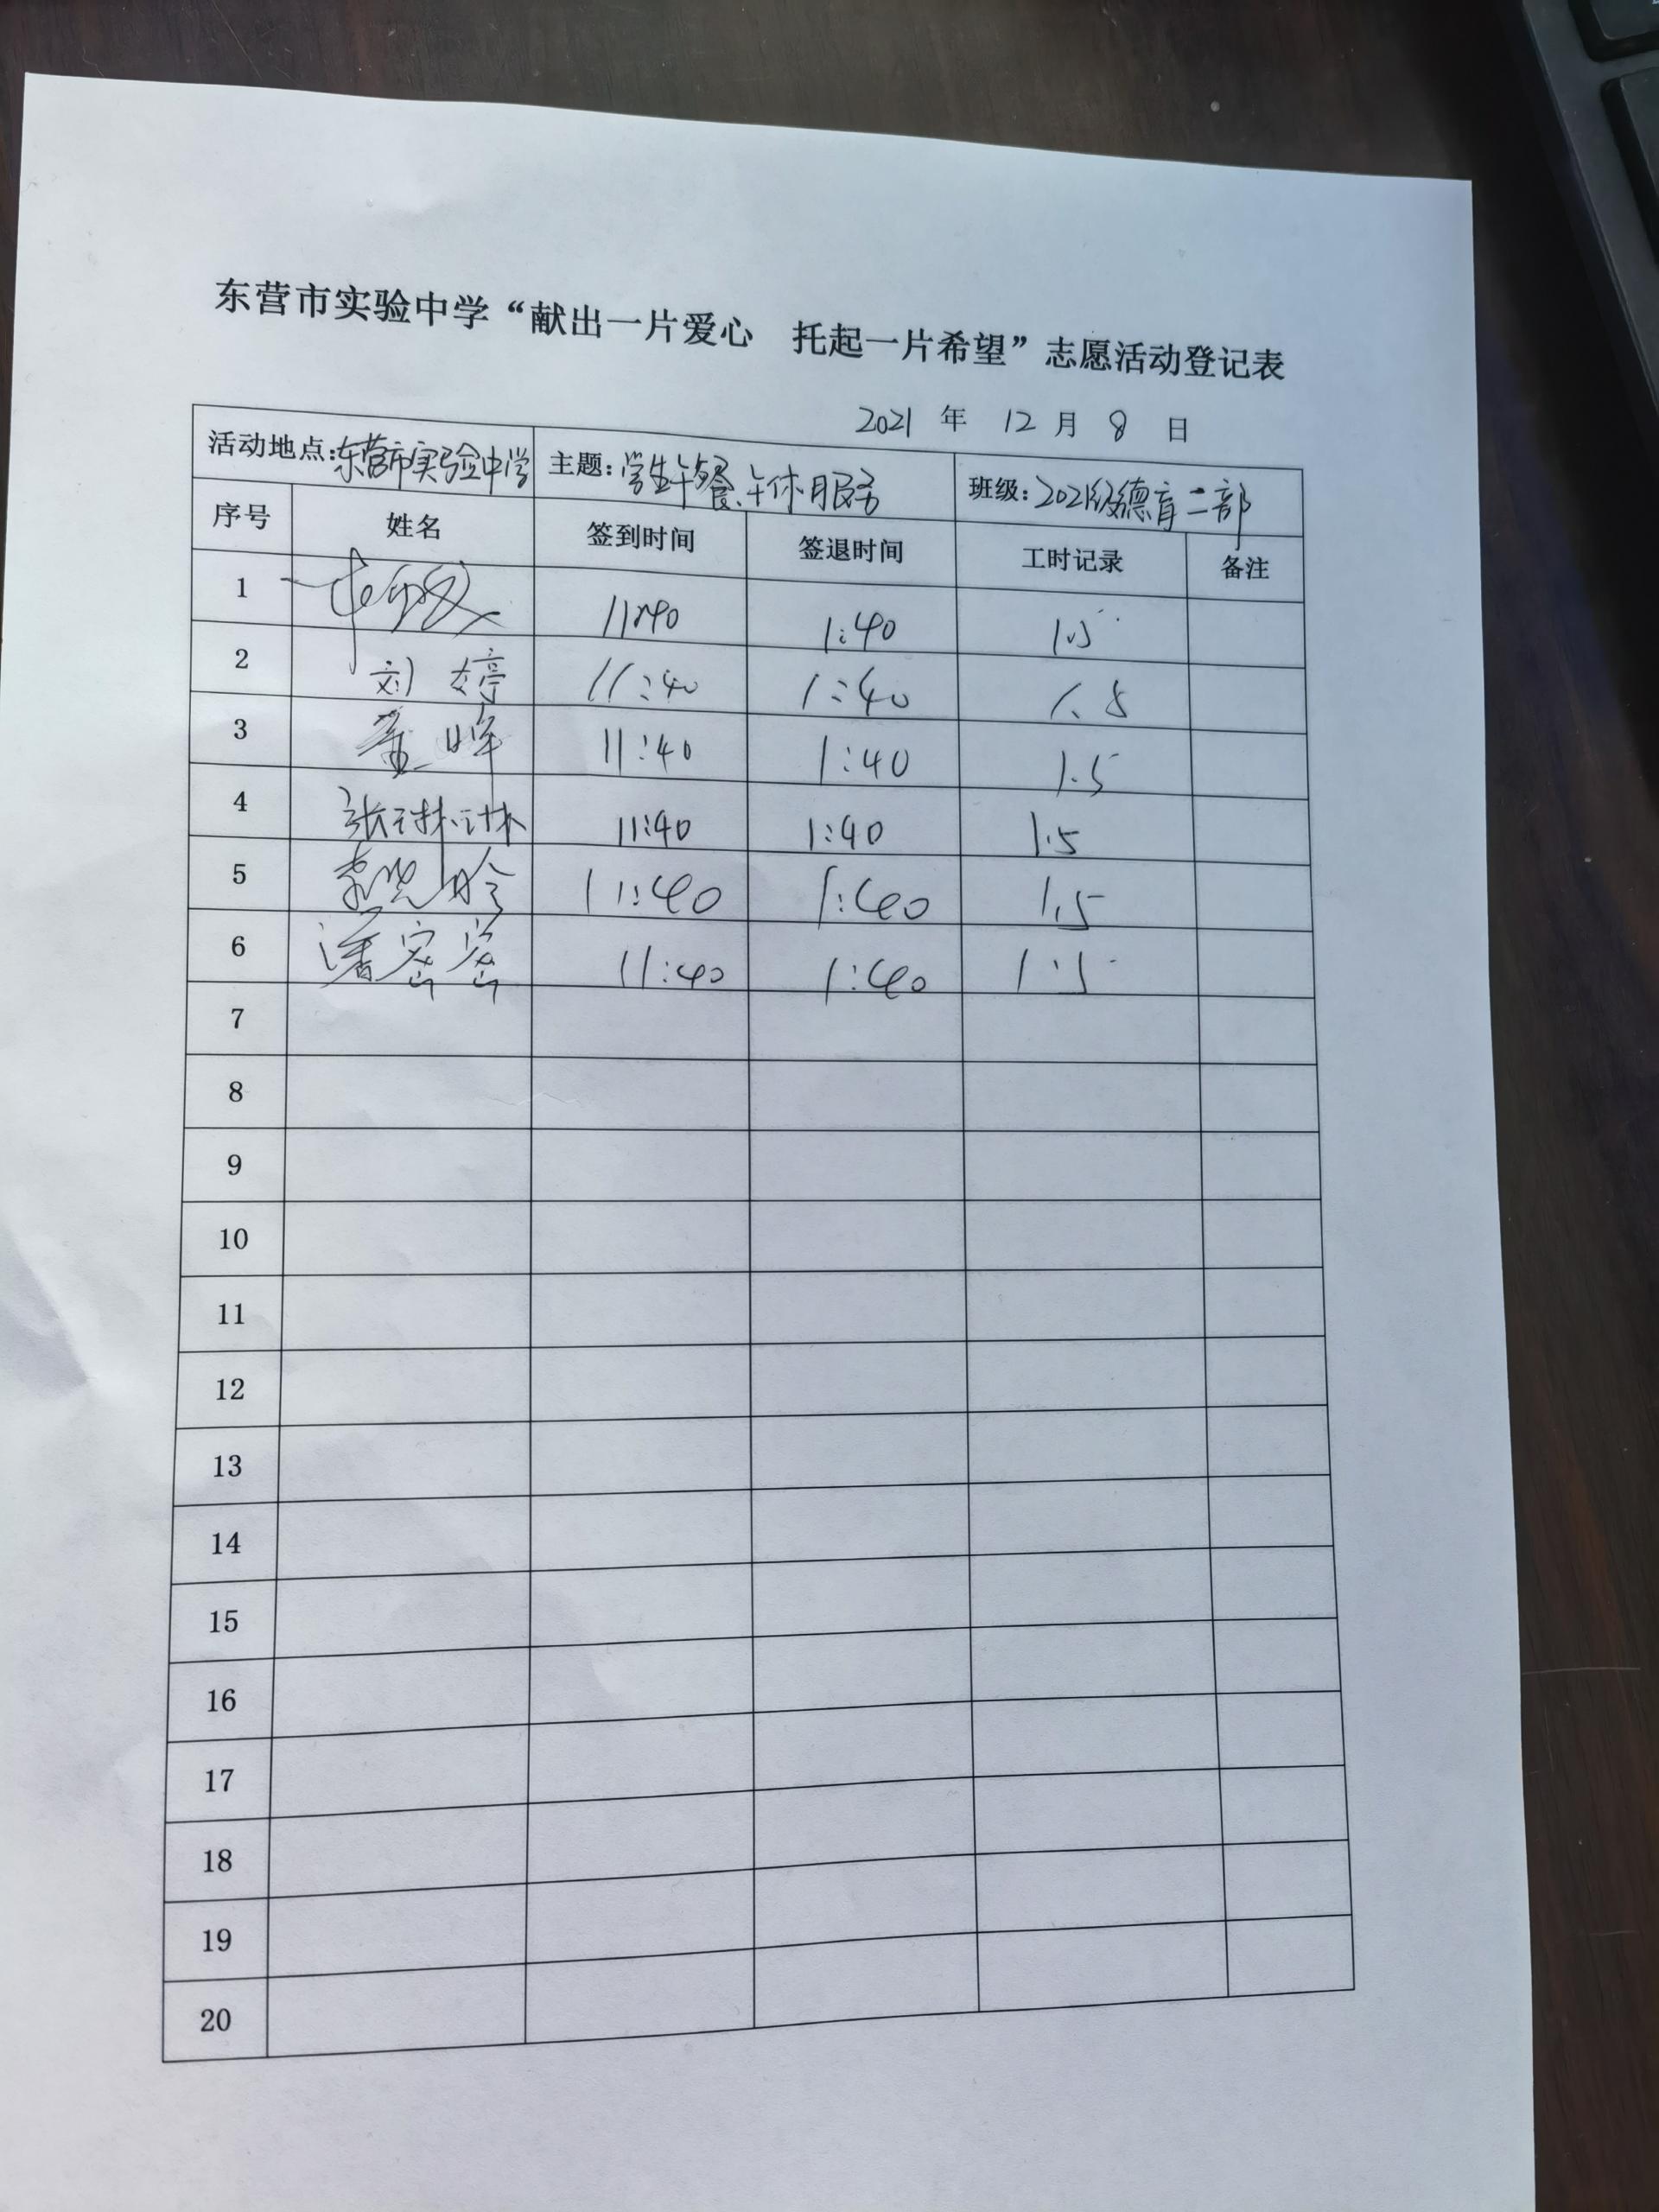 东营市实验中学“献出一片爱心 托起一片希望”志愿活动登记表
2021 年 12 月 8 日
活动地点:东营市实验中学 主题:学生午餐、午休服务 班级:2021级德育二部
序号 姓名 签到时间 签退时间 工时记录 备注
1 11:40 1:40 1.5
2 刘婷 11:40 1:40 1.5
3 董晖 11:40 1:40 1.5
4 张琳琳 11:40 1:40 1.5
5 11:40 1:40 1.5
6 潘密密 11:40 1:40 1.5
7
8
9
10
11
12
13
14
15
16
17
18
19
20